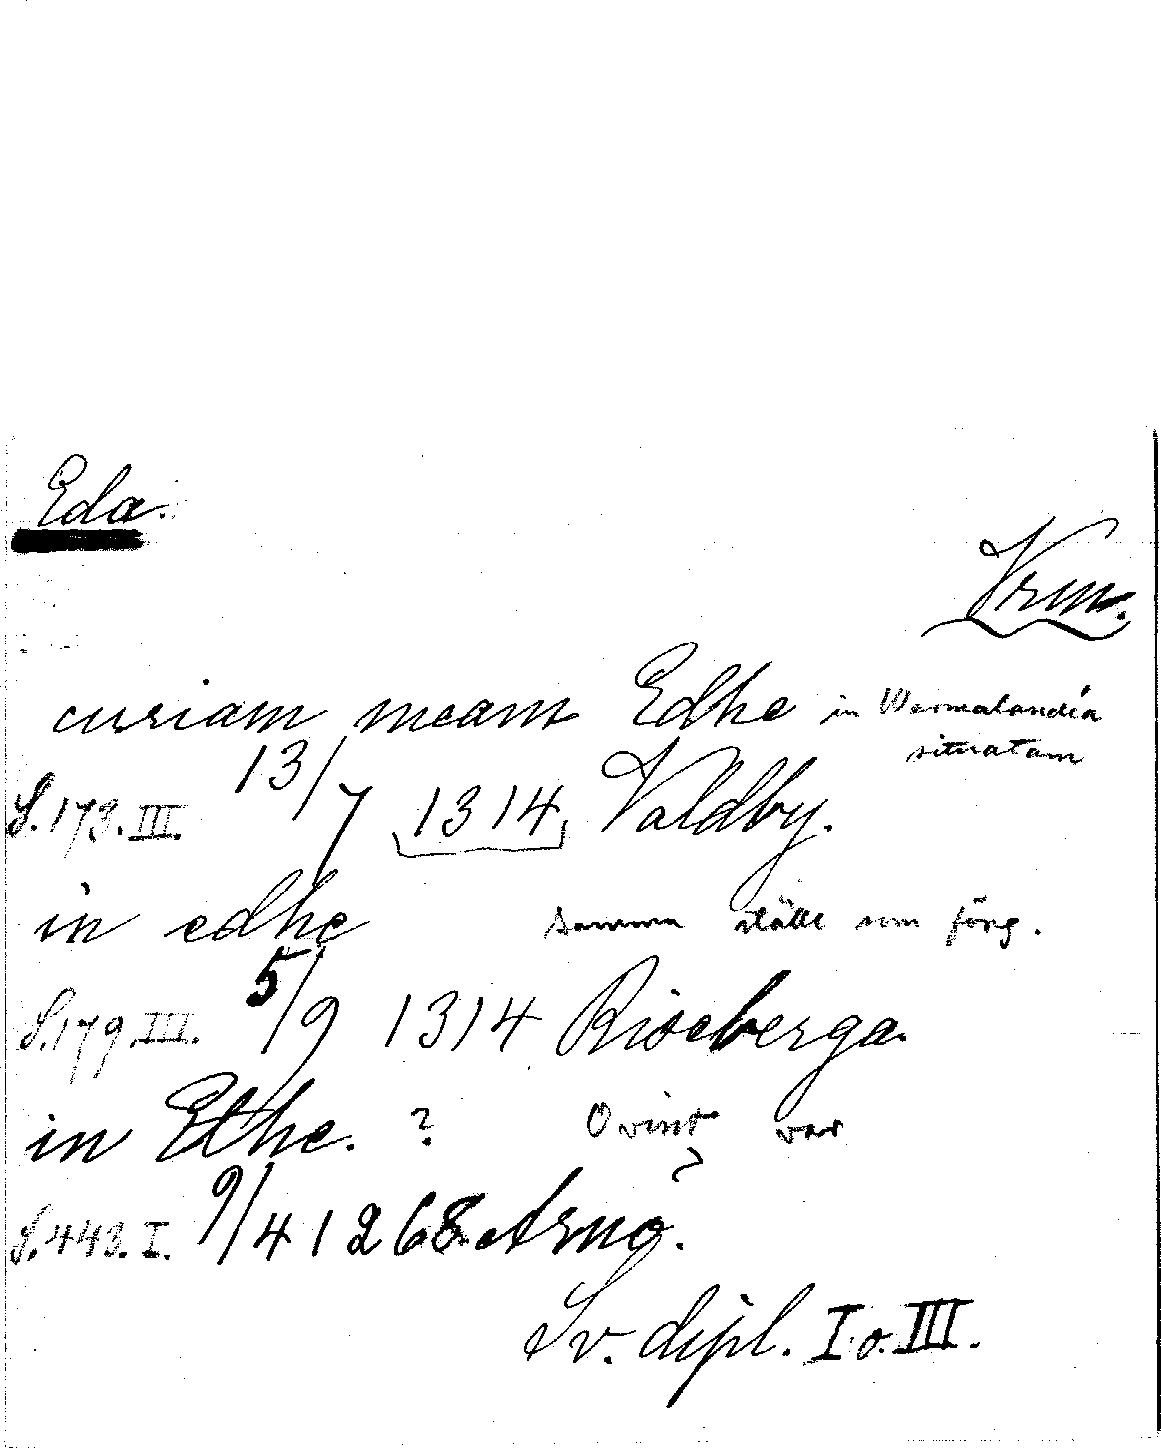 Eda.
Vrm.
curiam meam Edhe in Wermalandia
situatam
S. 173. III. 13/7 1314 Valdby.
in edhe samma ställe som föreg.
S. 179. III. 5/9 1314 Riseberga.
in Ethe. ? Ovisst var
S. 443. I. 9/4 1268 Arnö. ?
Sv. dipl. I o. III.